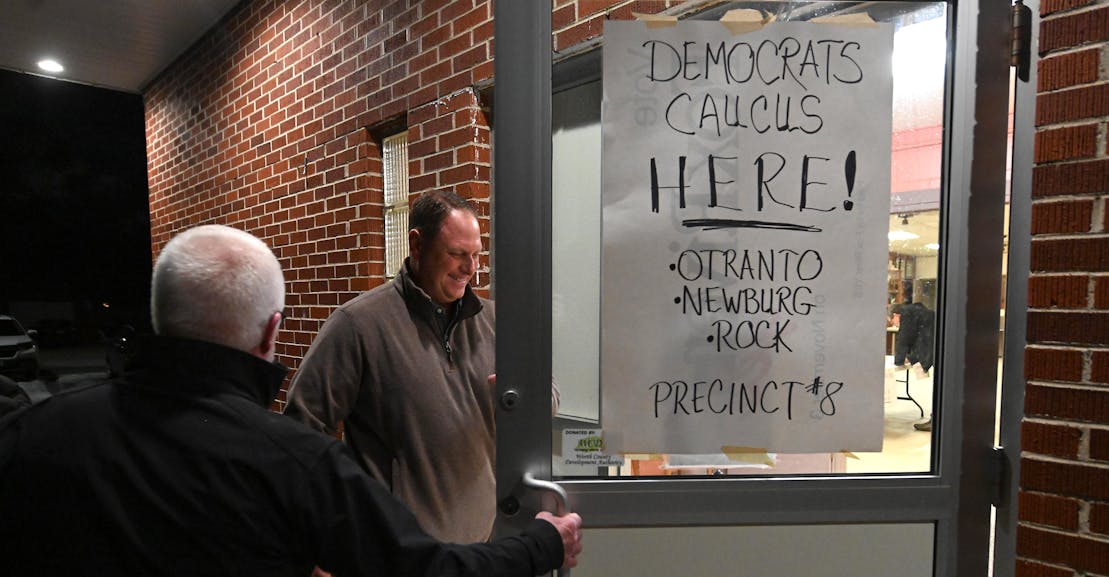 DEMOCRATS
CAUCUS
HERE!
•OTRANTO
•NEWBURG
•ROCK
PRECINCT #8
DONATED BY:
Worth County
Development Authority